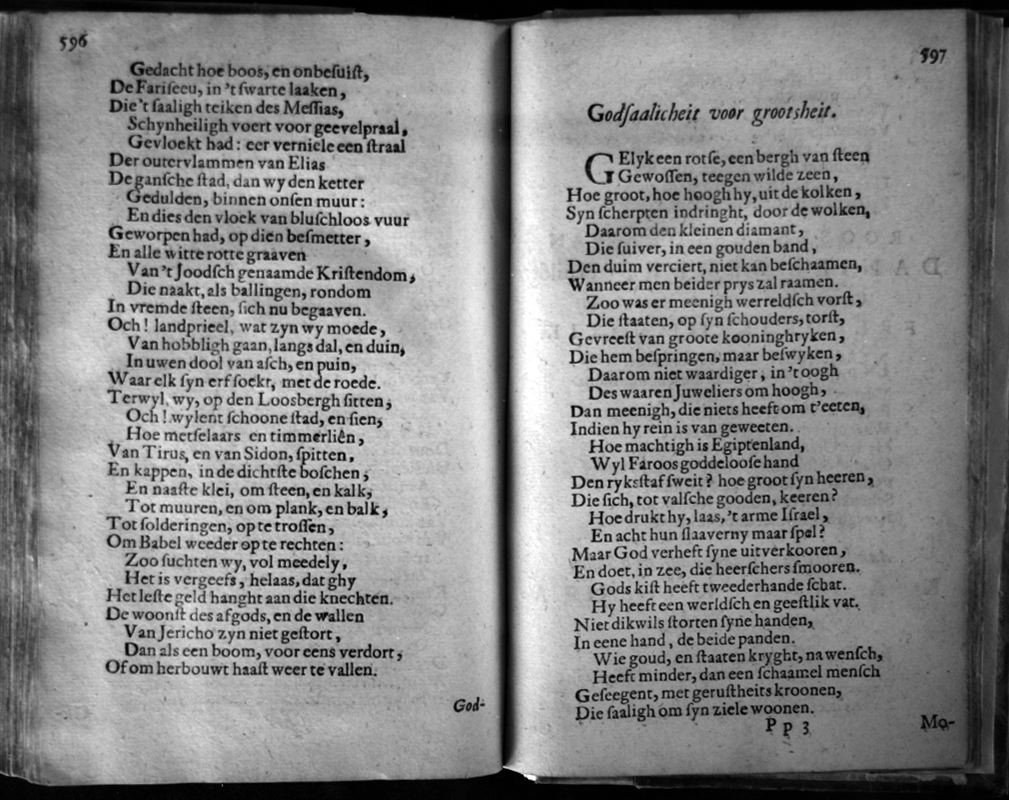 596
Gedacht hoe boos, en onbeſuiſt,
De Fariſeeu, in 't ſwarte laaken,
Die 't ſaaligh teiken des Meſſias,
Schynheiligh voert voor geevelpraal,
Gevloekt had: eer verniele een ſtraal
Der outervlammen van Elias
De ganſche ſtad, dan wy den ketter
Gedulden, binnen onſen muur:
En dies den vloek van bluſchloos vuur
Geworpen had, op dien beſmetter,
En alle witte rotte graaven
Van 't Joodſch genaamde Kriſtendom,
Die naakt, als ballingen, rondom
In vremde ſteen, ſich nu begaaven.
Och! landprieel, wat zyn wy moede,
Van hobbligh gaan, langs dal, en duin,
In uwen dool van aſch, en puin,
Waar elk ſyn erf ſoekt, met de roede.
Terwyl wy, op den Loosbergh ſitten,
Och! wylent ſchoone ſtad, en ſien,
Hoe metſelaars en timmerliên,
Van Tirus, en van Sidon, ſpitten,
En kappen, in de dichtſte boſchen,
En naaſte klei, om ſteen, en kalk,
Tot muuren, en om plank, en balk,
Tot ſolderingen, op te troſſen,
Om Babel weeder op te rechten:
Zoo ſuchten wy, vol meedely,
Het is vergeefs, helaas, dat ghy
Het leſte geld hanght aan die knechten.
De woonſt des afgods, en de wallen
Van Jericho zyn niet geſtort,
Dan als een boom, voor eens verdort,
Of om herbouwt haaſt weer te vallen.
God-
597
Godſaalicheit voor grootsheit.
GElyk een rotſe, een bergh van ſteen
Gewoſſen, teegen wilde zeen,
Hoe groot, hoe hoogh hy, uit de kolken,
Syn ſcherpten indringht, door de wolken,
Daarom den kleinen diamant,
Die ſuiver, in een gouden band,
Den duim verciert, niet kan beſchaamen,
Wanneer men beider prys zal raamen.
Zoo was er meenigh werreldſch vorſt,
Die ſtaaten, op ſyn ſchouders, torſt,
Gevreeſt van groote kooninghryken,
Die hem beſpringen, maar beſwyken,
Daarom niet waardiger, in 't oogh
Des waaren Juweliers om hoogh,
Dan meenigh, die niets heeft om t'eeten,
Indien hy rein is van geweeten.
Hoe machtigh is Egiptenland,
Wyl Faroos goddelooſe hand
Den ryksſtaf ſweit? hoe groot ſyn heeren,
Die ſich, tot valſche gooden, keeren?
Hoe drukt hy, laas, 't arme Iſrael,
En acht hun ſlaaverny maar ſpel?
Maar God verheft ſyne uitverkooren,
En doet, in zee, die heerſchers ſmooren.
Gods kiſt heeft tweederhande ſchat.
Hy heeft een werldſch en geeſtlik vat.
Niet dikwils ſtorten ſyne handen,
In eene hand, de beide panden.
Wie goud, en ſtaaten kryght, na wenſch,
Heeft minder, dan een ſchaamel menſch
Geſeegent, met geruſtheits kroonen,
Die ſaaligh om ſyn ziele woonen.
Pp 3
Mo-